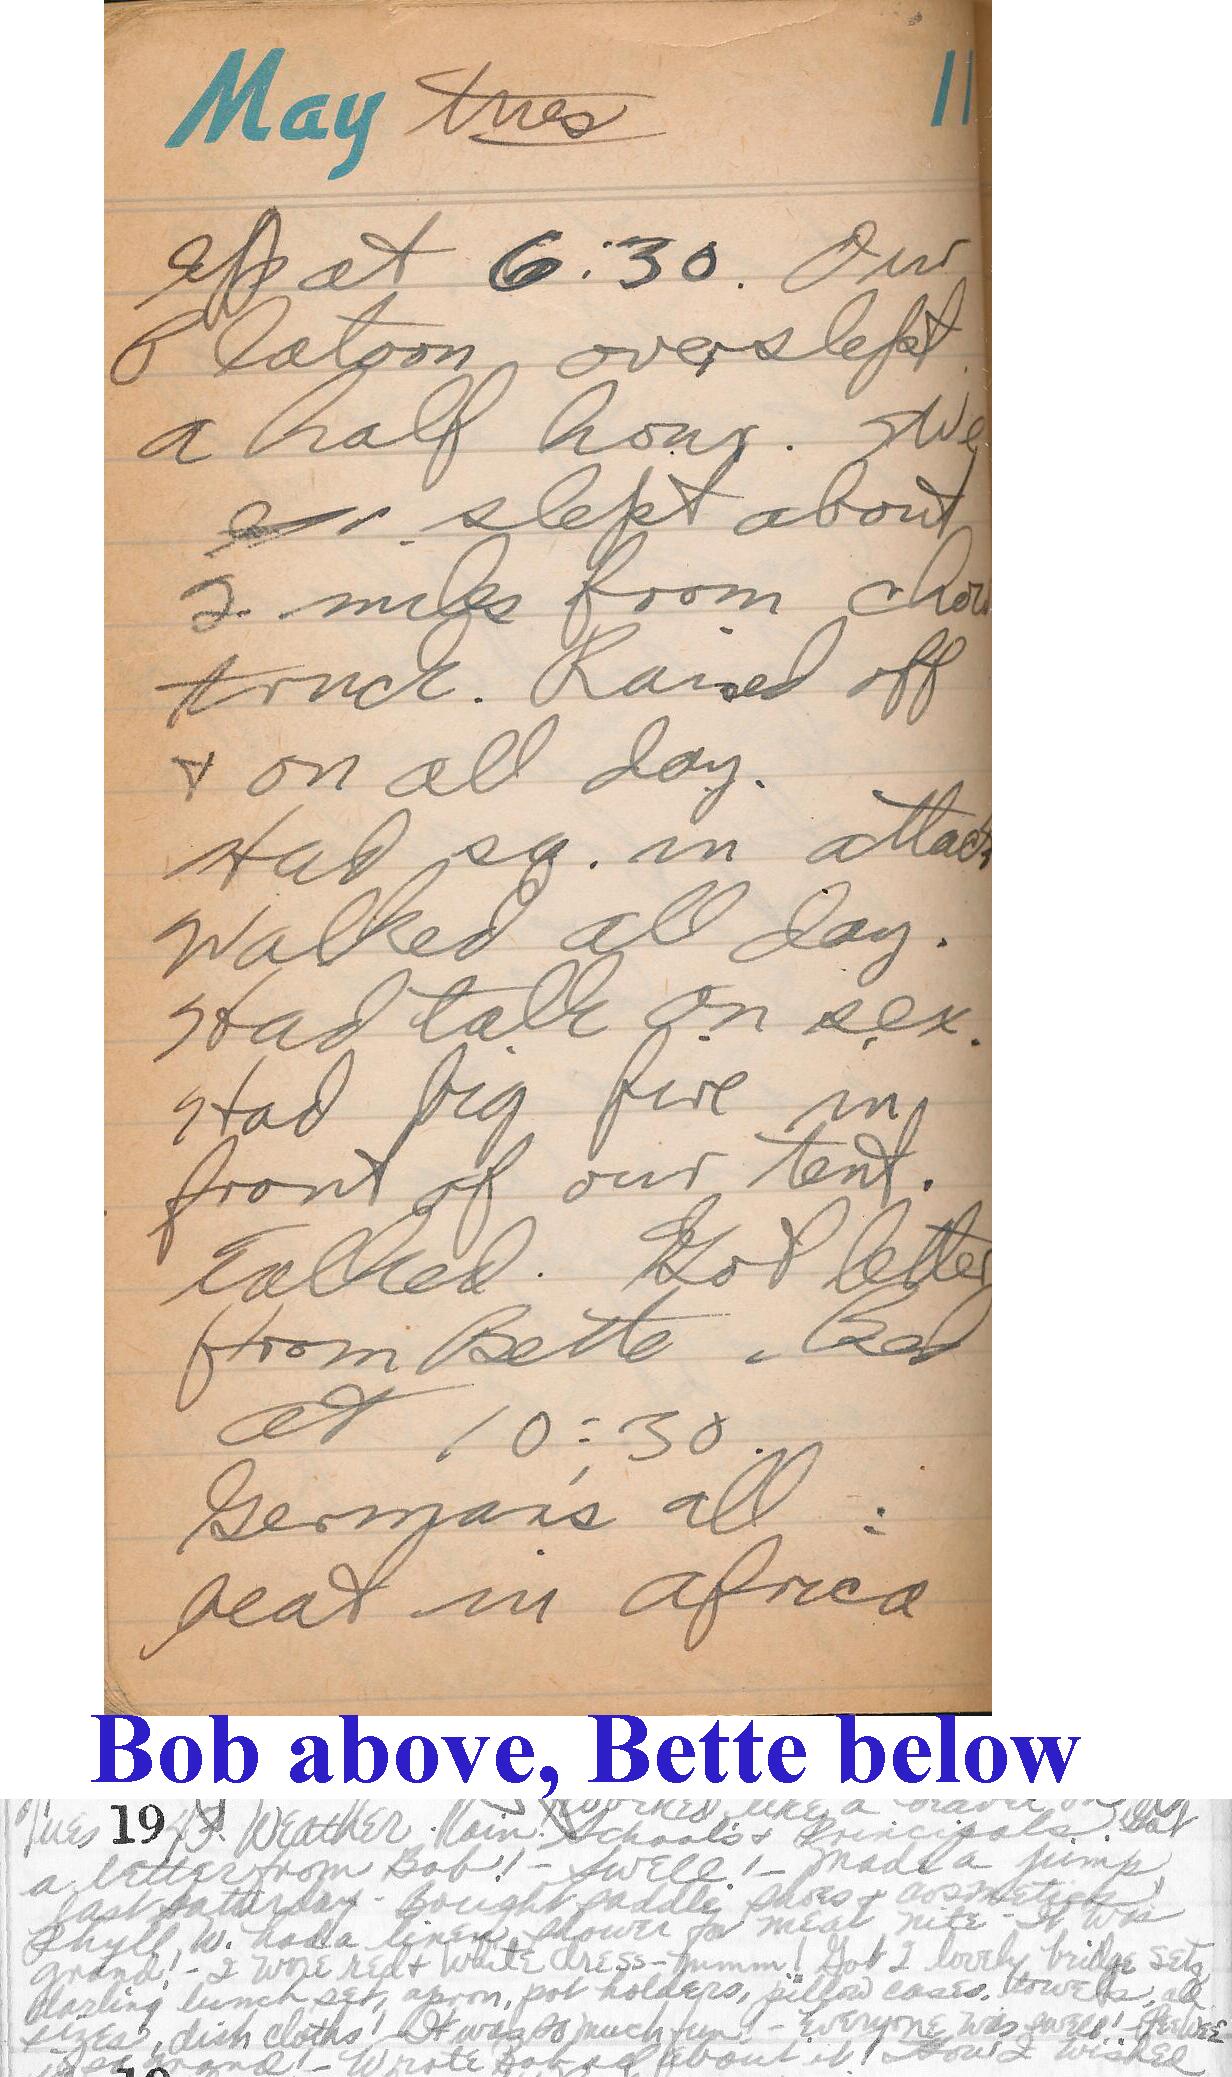 May tues 11
up at 6:30. Our
Platoon overslept
a half hour. We
slept about
2 miles from chow
truck. Rained off
+ on all day.
Had sq. in attack
Walked all day.
Had talk on sex.
Had big fire in
front of our tent.
Talked. Got letter
from Bette. Bed
at 10:30.
Germans all
beat in Africa
Bob above, Bette below
worked like a beaver on
Tues 19 43. Weather. Rain! Schools + Principals. Got
a letter from Bob! - Swell! - Made a jump
last Saturday - Bought saddle shoes + cosmetics
Phyll. W. had a linen shower for me at nite - It was
grand! - I wore red + white dress - mmmm! Got 2 lovely bridge sets,
darling lunch set, apron, pot holders, pillow cases, towels, all
sizes, dish cloths! It was so much fun! - Everyone was swell!
is so grand! - Wrote Bob about it! How I wished
19